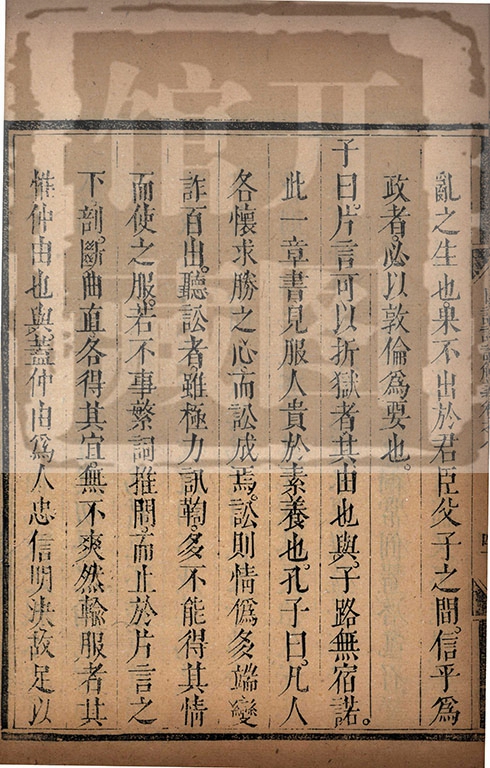 亂之生也果不出於君臣父子之間信乎爲
政者必以敦倫爲要也
子曰片言可以折獄者其由也與子路無宿諾
此一章書見服人貴於素養也孔子曰凡人
各懷求勝之心而訟成焉訟則情僞多端變
詐百出聽訟者雖極力訊鞫多不能得其情
而使之服若不事繁詞推問而止於片言之
下剖斷曲直各得其宜無不爽然輸服者其
惟仲由也與蓋仲由爲人忠信明決故足以